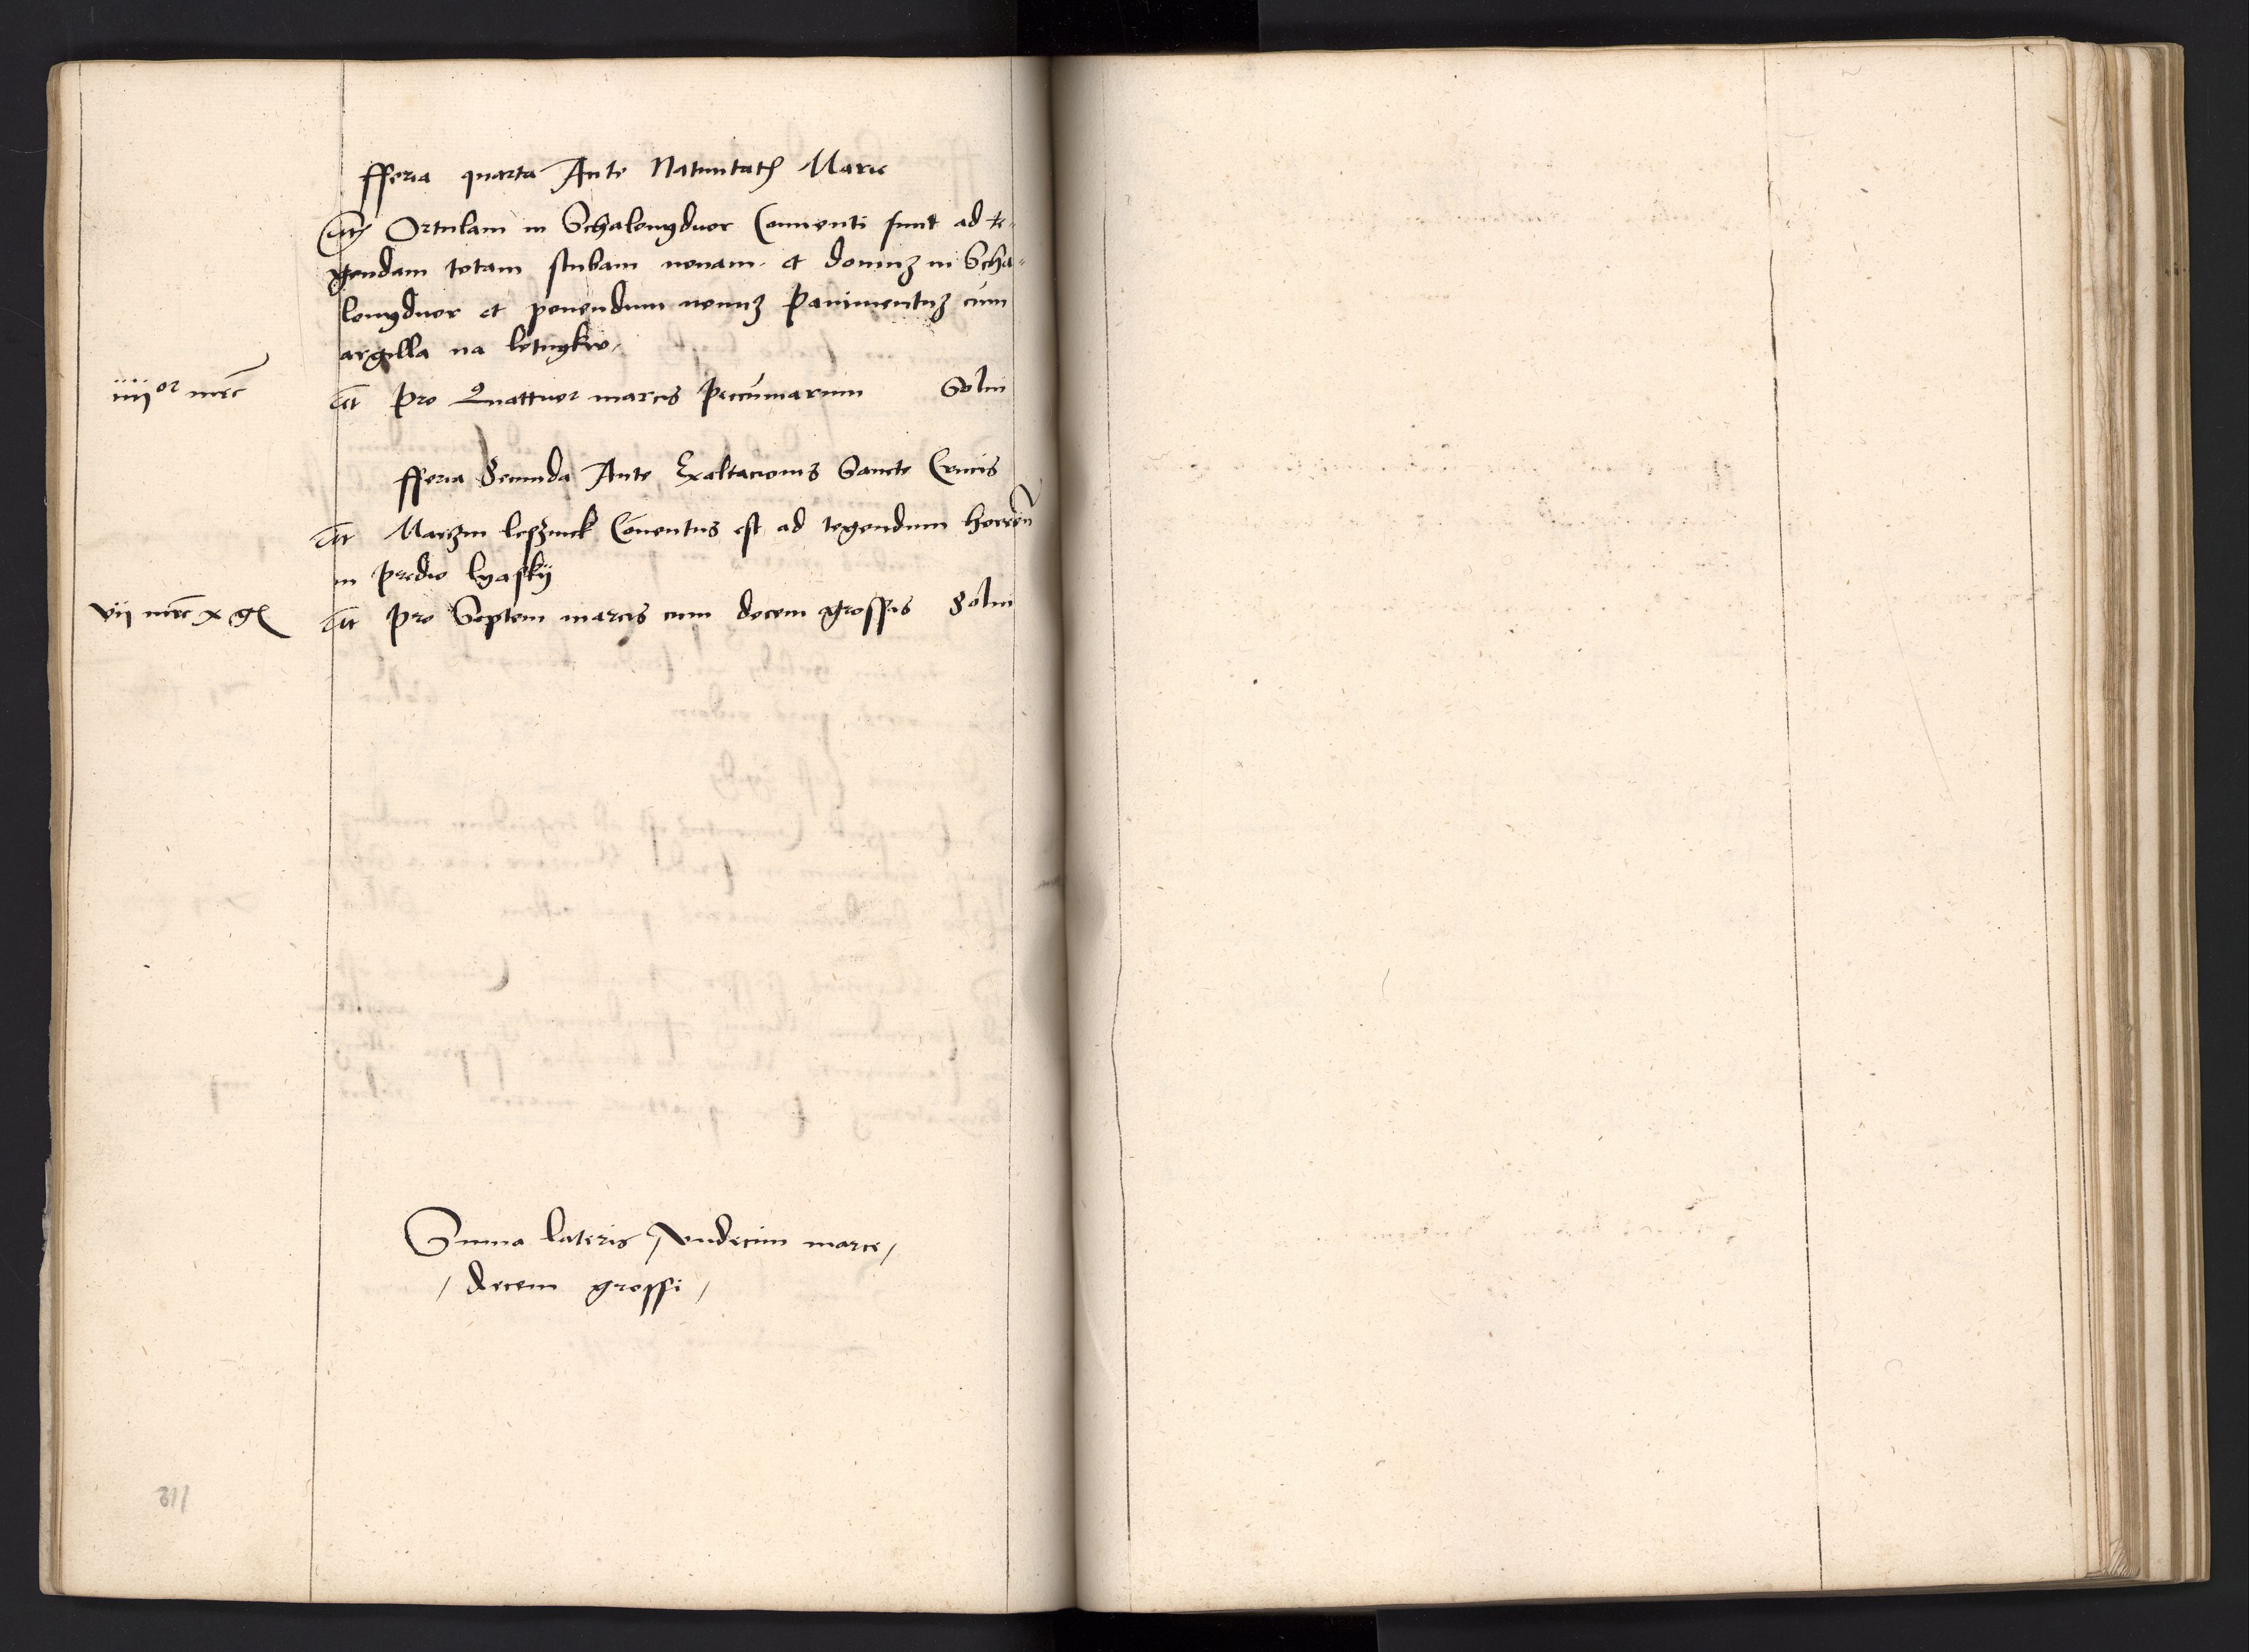 fferia quarta Ante Natiuitatis Marie
Item Ortulani in Schalonyduor Conuenti sunt ad te-
gendam totam stubam nouam et domuz in Scha-
lonyduor et ponendum nouuz Pauimentuz cum
argilla na letnykw
iiii or mrc Itt Pro Quattuor marcis Pecuniarum Solui
fferia Secunda Ante Exaltacionis Sancte Crucis
Itt Marczin Conuentus est ad tegendum horreum
in Predio lyasky
vii mrc x gr Itt Pro Septem marcis cum decem grossis Solui
Summa lateris / vndecim marce /
/ decem grossi /